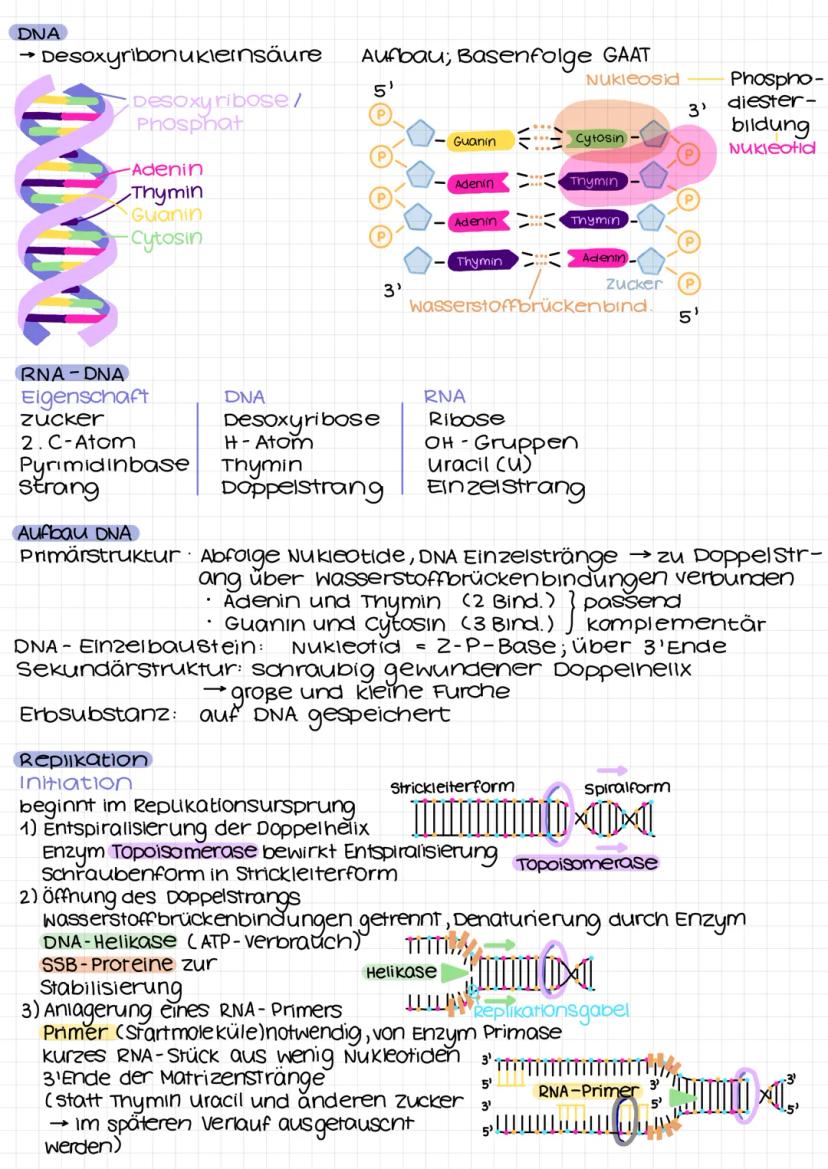 DNA
→ Desoxyribonukleinsäure
Desoxyribose/
Phosphat
Adenin
Thymin
Guanin
Cytosin
Aufbau; Basenfolge GAAT
Nukleosid
Phospho-
diester-
bildung
Nukleotid
5'
3'
P
P
P
P
P
P
P
P
Guanin
Cytosin
Adenin
Thymin
Adenin
Thymin
Thymin
Adenin
Zucker
3'
5'
Wasserstoffbrückenbind.
RNA-DNA
Eigenschaft DNA RNA
Zucker Desoxyribose Ribose
2. C-Atom H-Atom OH-Gruppen
Pyrimidinbase Thymin Uracil (U)
Strang Doppelstrang Einzelstrang
Aufbau DNA
Primärstruktur: Abfolge Nukleotide, DNA Einzelstränge → zu Doppelstr-
ang über Wasserstoffbrückenbindungen verbunden
· Adenin und Thymin (2 Bind.) } passend
· Guanin und Cytosin (3 Bind.) } komplementär
DNA-Einzelbaustein: Nukleotid = Z-P-Base; über 3'Ende
Sekundärstruktur: schraubig gewundener Doppelhelix
→ große und kleine Furche
Erbsubstanz: auf DNA gespeichert
Replikation
Initiation
beginnt im Replikationsursprung
1) Entspiralisierung der Doppelhelix
Enzym Topoisomerase bewirkt Entspiralisierung
Schraubenform in Strickleiterform
Strickleiterform
Spiralform
Topoisomerase
2) Öffnung des Doppelstrangs
Wasserstoffbrückenbindungen getrennt, Denaturierung durch Enzym
DNA-Helikase (ATP-Verbrauch)
SSB-Proteine zur
Stabilisierung
Helikase
Replikationsgabel
3) Anlagerung eines RNA-Primers
Primer (Startmoleküle) notwendig, von Enzym Primase
kurzes RNA-Stück aus wenig Nukleotiden
3'Ende der Matrizenstränge
(statt Thymin Uracil und anderen Zucker
→ im späteren Verlauf ausgetauscht
werden)
3'
5'
RNA-Primer
3'
3'
5'
5'
3'
5'